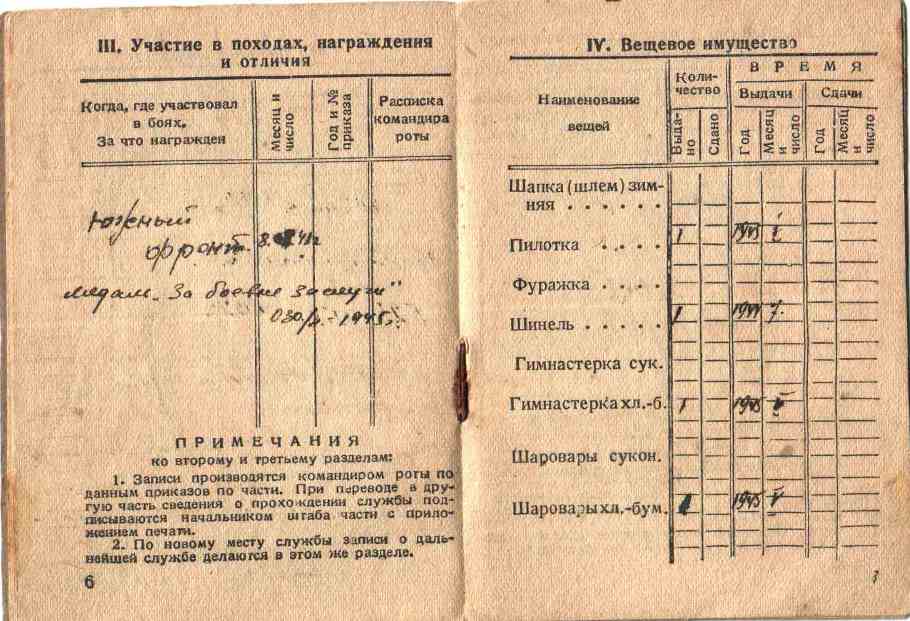 III. Участие в походах, награждения
и отличия
Когда, где участвовал
в боях.
За что награжден
Месяц и
число
Год и №
приказа
Расписка
командира
роты
Южный
фронт 8. 41г
медал. За боевые заслуги"
1945г.
ПРИМЕЧАНИЯ
ко второму и третьему разделам:
1. Записи производятся командиром роты по
данным приказов по части. При переводе в дру-
гую часть сведения о прохождении службы под-
писываются начальником штаба части с прило-
жением печати.
2. По новому месту службы записи о даль-
нейшей службе делаются в этом же разделе.
6
IV. Вещевое имущество
Наименование
вещей
Коли-
чество
ВРЕМЯ
Выдачи
Сдачи
Выда-
но
Сдано
Год
Месяц
и
число
Год
Месяц
и
число
Шапка (шлем) зим-
няя . . . . . .
Пилотка . . . . 1 1945
Фуражка . . . .
Шинель . . . . . 1 1944
Гимнастерка сук.
Гимнастерка хл.-б. 1 1945 V
Шаровары сукон.
Шаровары хл.-бум. 1 1945 V